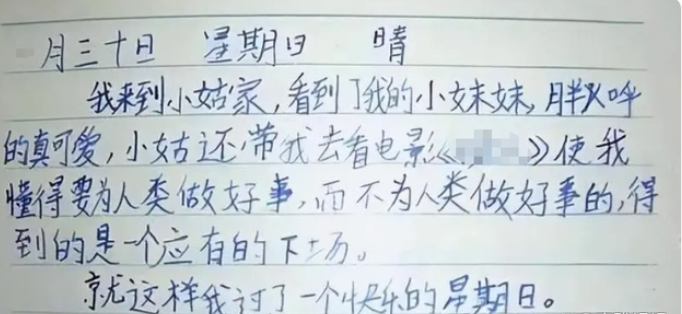 月三十日 星期日 晴
我来到小姑家，看到了我的小妹妹，胖乎呼
的真可爱，小姑还带我去看电影《》使我
懂得要为人类做好事，而不为人类做好事的，得
到的是一个应有的下场。
就这样我过了一个快乐的星期日。